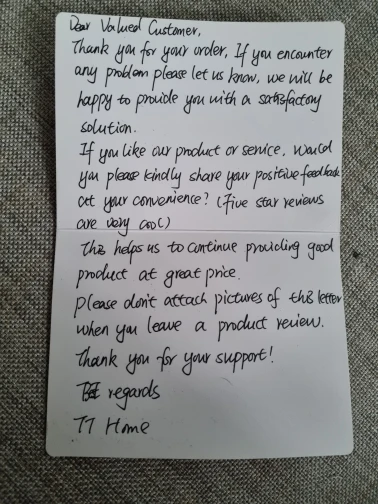 Dear Valued Customer,
Thank you for your order, If you encounter
any problem please let us know, we will be
happy to provide you with a satisfactory
solution.
If you like our product or service, would
you please kindly share your positive feedback
at your convenience? (Five star reviews
are very cool)
This helps us to continue providing good
product at great price.
please don't attach pictures of this letter
when you leave a product review.
Thank you for your support!
Best regards
TT Home